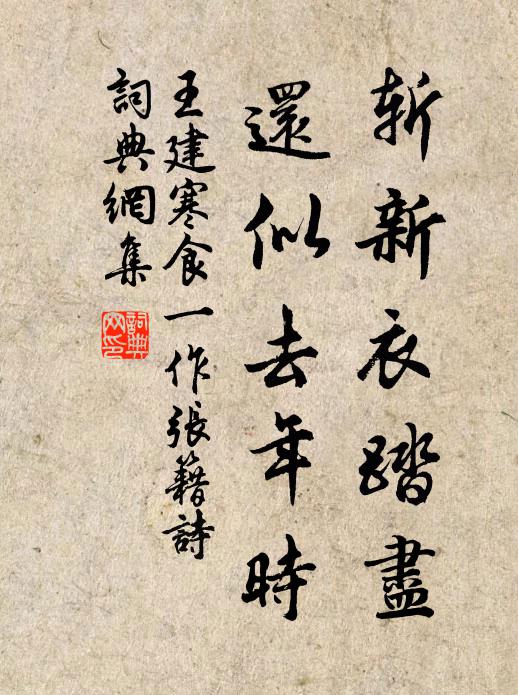 斬新衣踏盡
還似去年時
王建寒食一作張籍詩
詞典網集
詞典网印